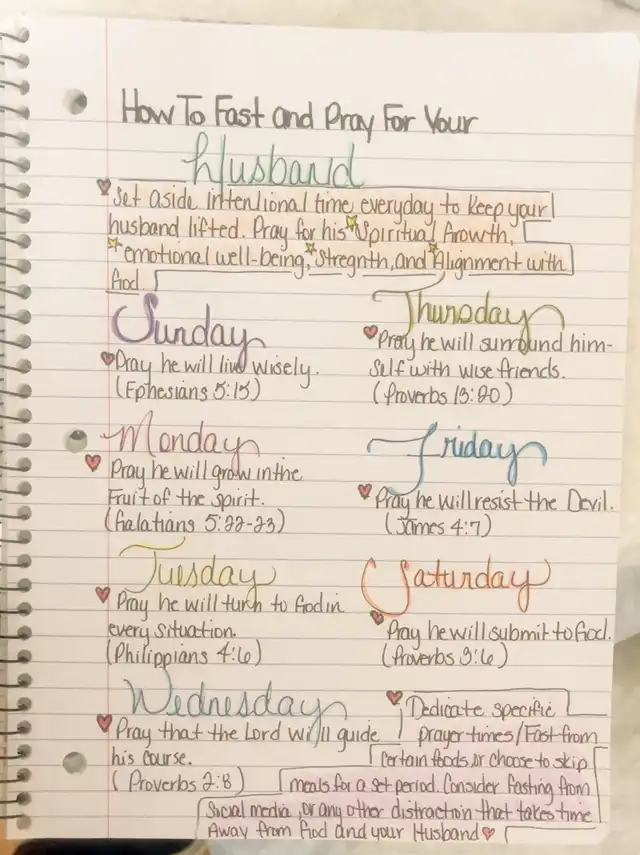 How To Fast and Pray For Your
Husband
Set aside intentional time everyday to keep your
husband lifted. Pray for his Spiritual Growth,
emotional well-being, Stregnth, and Alignment with
God.
Sunday
Pray he will live wisely.
(Ephesians 5:15)
Monday
Pray he will grow in the
Fruit of the spirit.
(Galatians 5:22-23)
Tuesday
Pray he will turn to God in
every situation.
(Philippians 4:6)
Wednesday
Pray that the Lord will guide
his course.
(Proverbs 2:8)
Thursday
Pray he will surround him-
self with wise friends.
(Proverbs 13:20)
Friday
Pray he will resist the Devil.
(James 4:7)
Saturday
Pray he will submit to God.
(Proverbs 3:6)
Dedicate specific
prayer times/Fast from
certain foods, or choose to skip
meals for a set period. Consider fasting from
Social media, or any other distraction that takes time
Away from God and your Husband